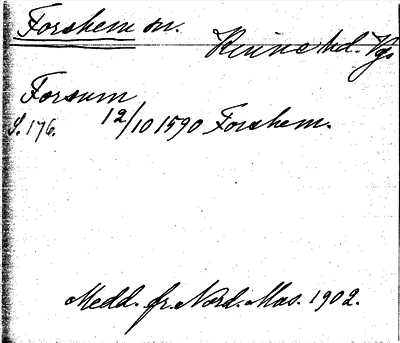 Forshem sn. Kinne hd. Vg.
Forsum
S. 176. 12/10 1590 Forshem.
Medd. fr. Nord. Mus. 1902.